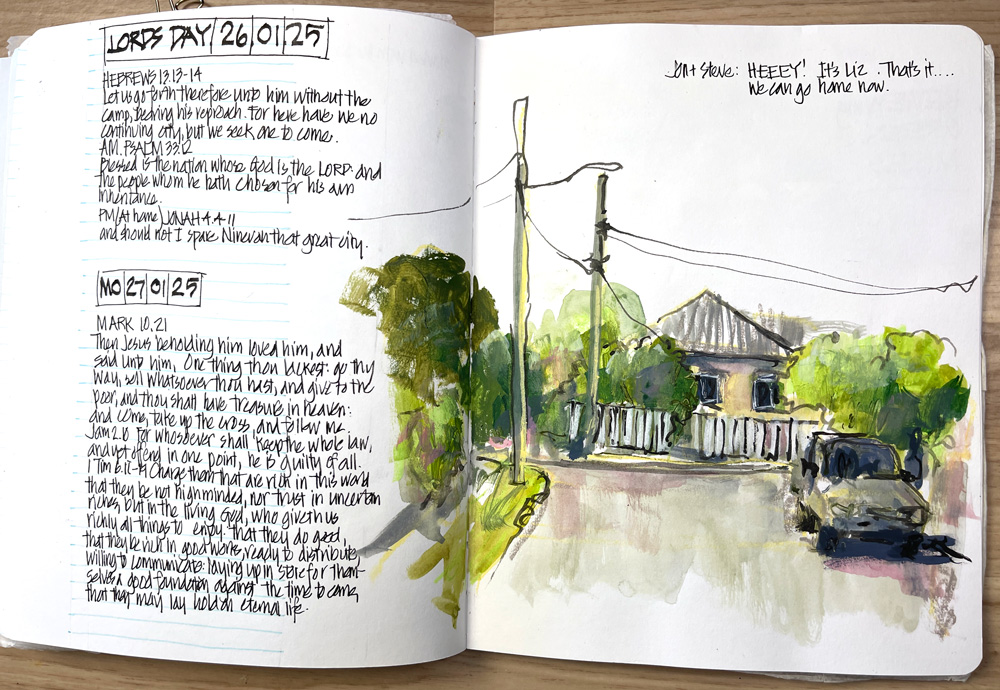 LORDS DAY 26 01 25
HEBREWS 13.13-14
Let us go forth therefore unto him without the
camp, bearing his reproach. For here have we no
continuing city, but we seek one to come.
AM. PSALM 33.12
Blessed is the nation whose God is the LORD: and
the people whom he hath chosen for his own
inheritance.
PM (At home) JONAH 4.4-11
and should not I spare Ninevah that great city.
MO 27 01 25
MARK 10.21
Then Jesus beholding him loved him, and
said unto him, One thing thou lackest: go thy
way, sell whatsoever thou hast, and give to the
poor, and thou shalt have treasure in heaven:
and come, take up the cross, and follow me.
Jam 2.10 for whosoever shall keep the whole law,
and yet offend in one point, he is guilty of all.
1 Tim 6.17-19 Charge them that are rich in this world
that they be not highminded, nor trust in uncertain
riches, but in the living God, who giveth us
richly all things to enjoy. that they do good,
that they be rich in good works, ready to distribute,
willing to communicate: laying up in store for them-
selves a good foundation against the time to come,
that they may lay hold on eternal life.
Jon + Steve: HEEEY! It's Liz. That's it....
We can go home now.